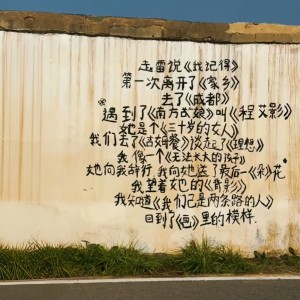 赵雷说《我记得》
第一次离开了《家乡》
去了《成都》
遇到了《南方姑娘》叫《程艾影》
她是个《三十岁的女人》
我们去了《吉姆餐》谈起了《理想》
我像一个《无法长大的孩子》
她向我辞行 我向她送了最后一《朵》花
我望着她的《背影》
我知道《我们已是两条路的人》
回到了《画》里的模样.